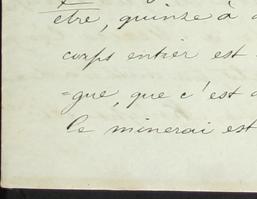 être, quinze à
corps entier est
=gue, que c'est
le minerai est